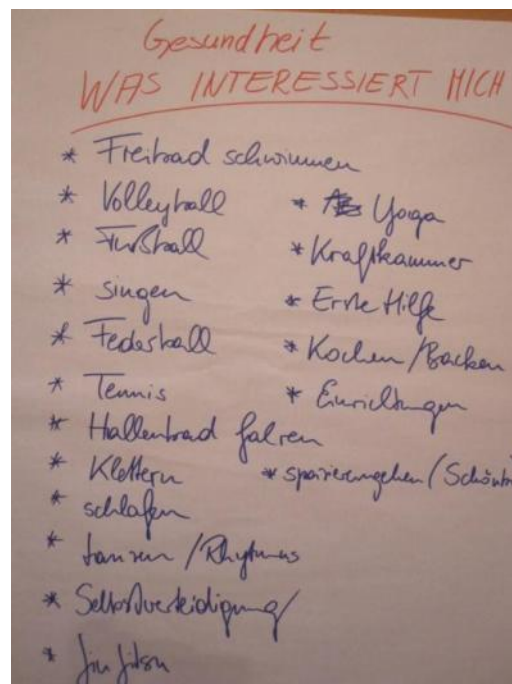 Gesundheit
WAS INTERESSIERT MICH
* Freibad schwimmen
* Volleyball
* Fußball
* singen
* Federball
* Tennis
* Hallenbad fahren
* Klettern
* schlafen
* tanzen / Rhytmus
* Selbstverteidigung
* Jiu Jitsu
* Yoga
* Kraftkammer
* Erste Hilfe
* Kochen / Backen
* Einrichtungen
* spazierengehen (Schönbr